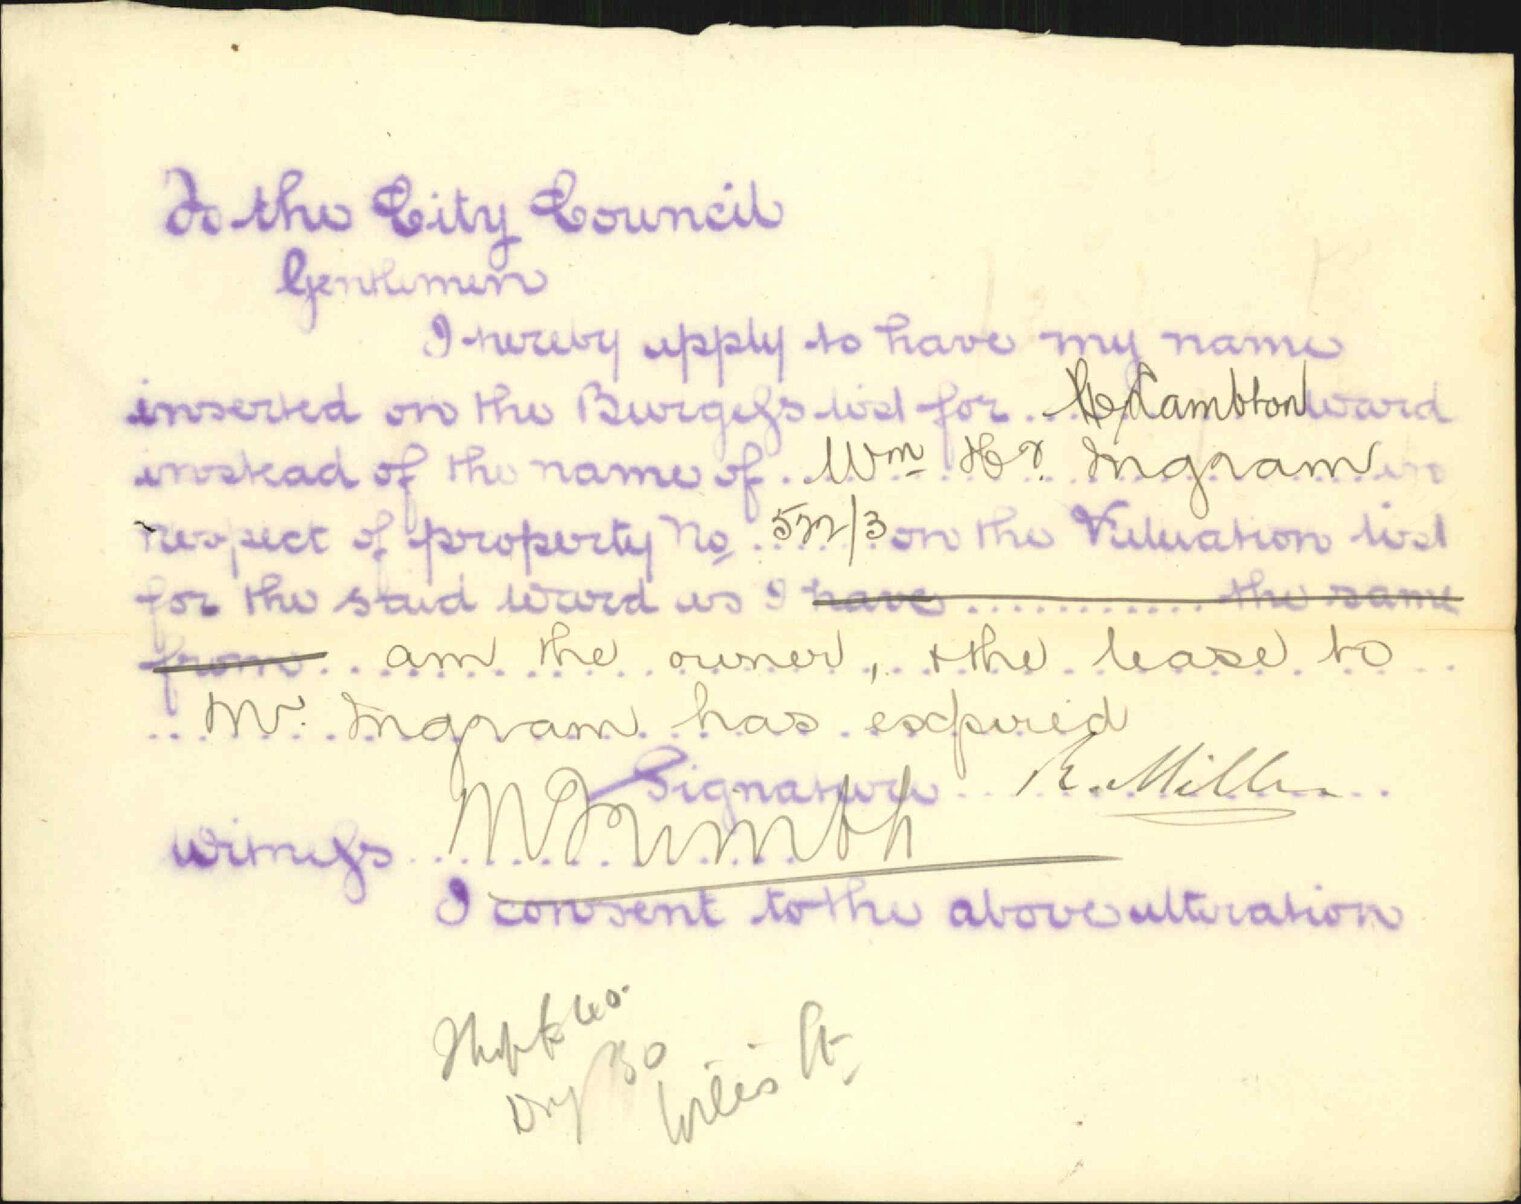 To the City Council
Gentlemen
I hereby apply to have my name
inserted on the Burgess list for ... Lambton Ward
instead of the name of Wm Hy. Ingram in
respect of property No 522/3 on the Valuation list
for the said Ward as I have ............ the same
from .. am the owner, & the lease to
Mr. Ingram has expired
Signature R. Miller
Witness
I consent to the above alteration
Dry
Willis St